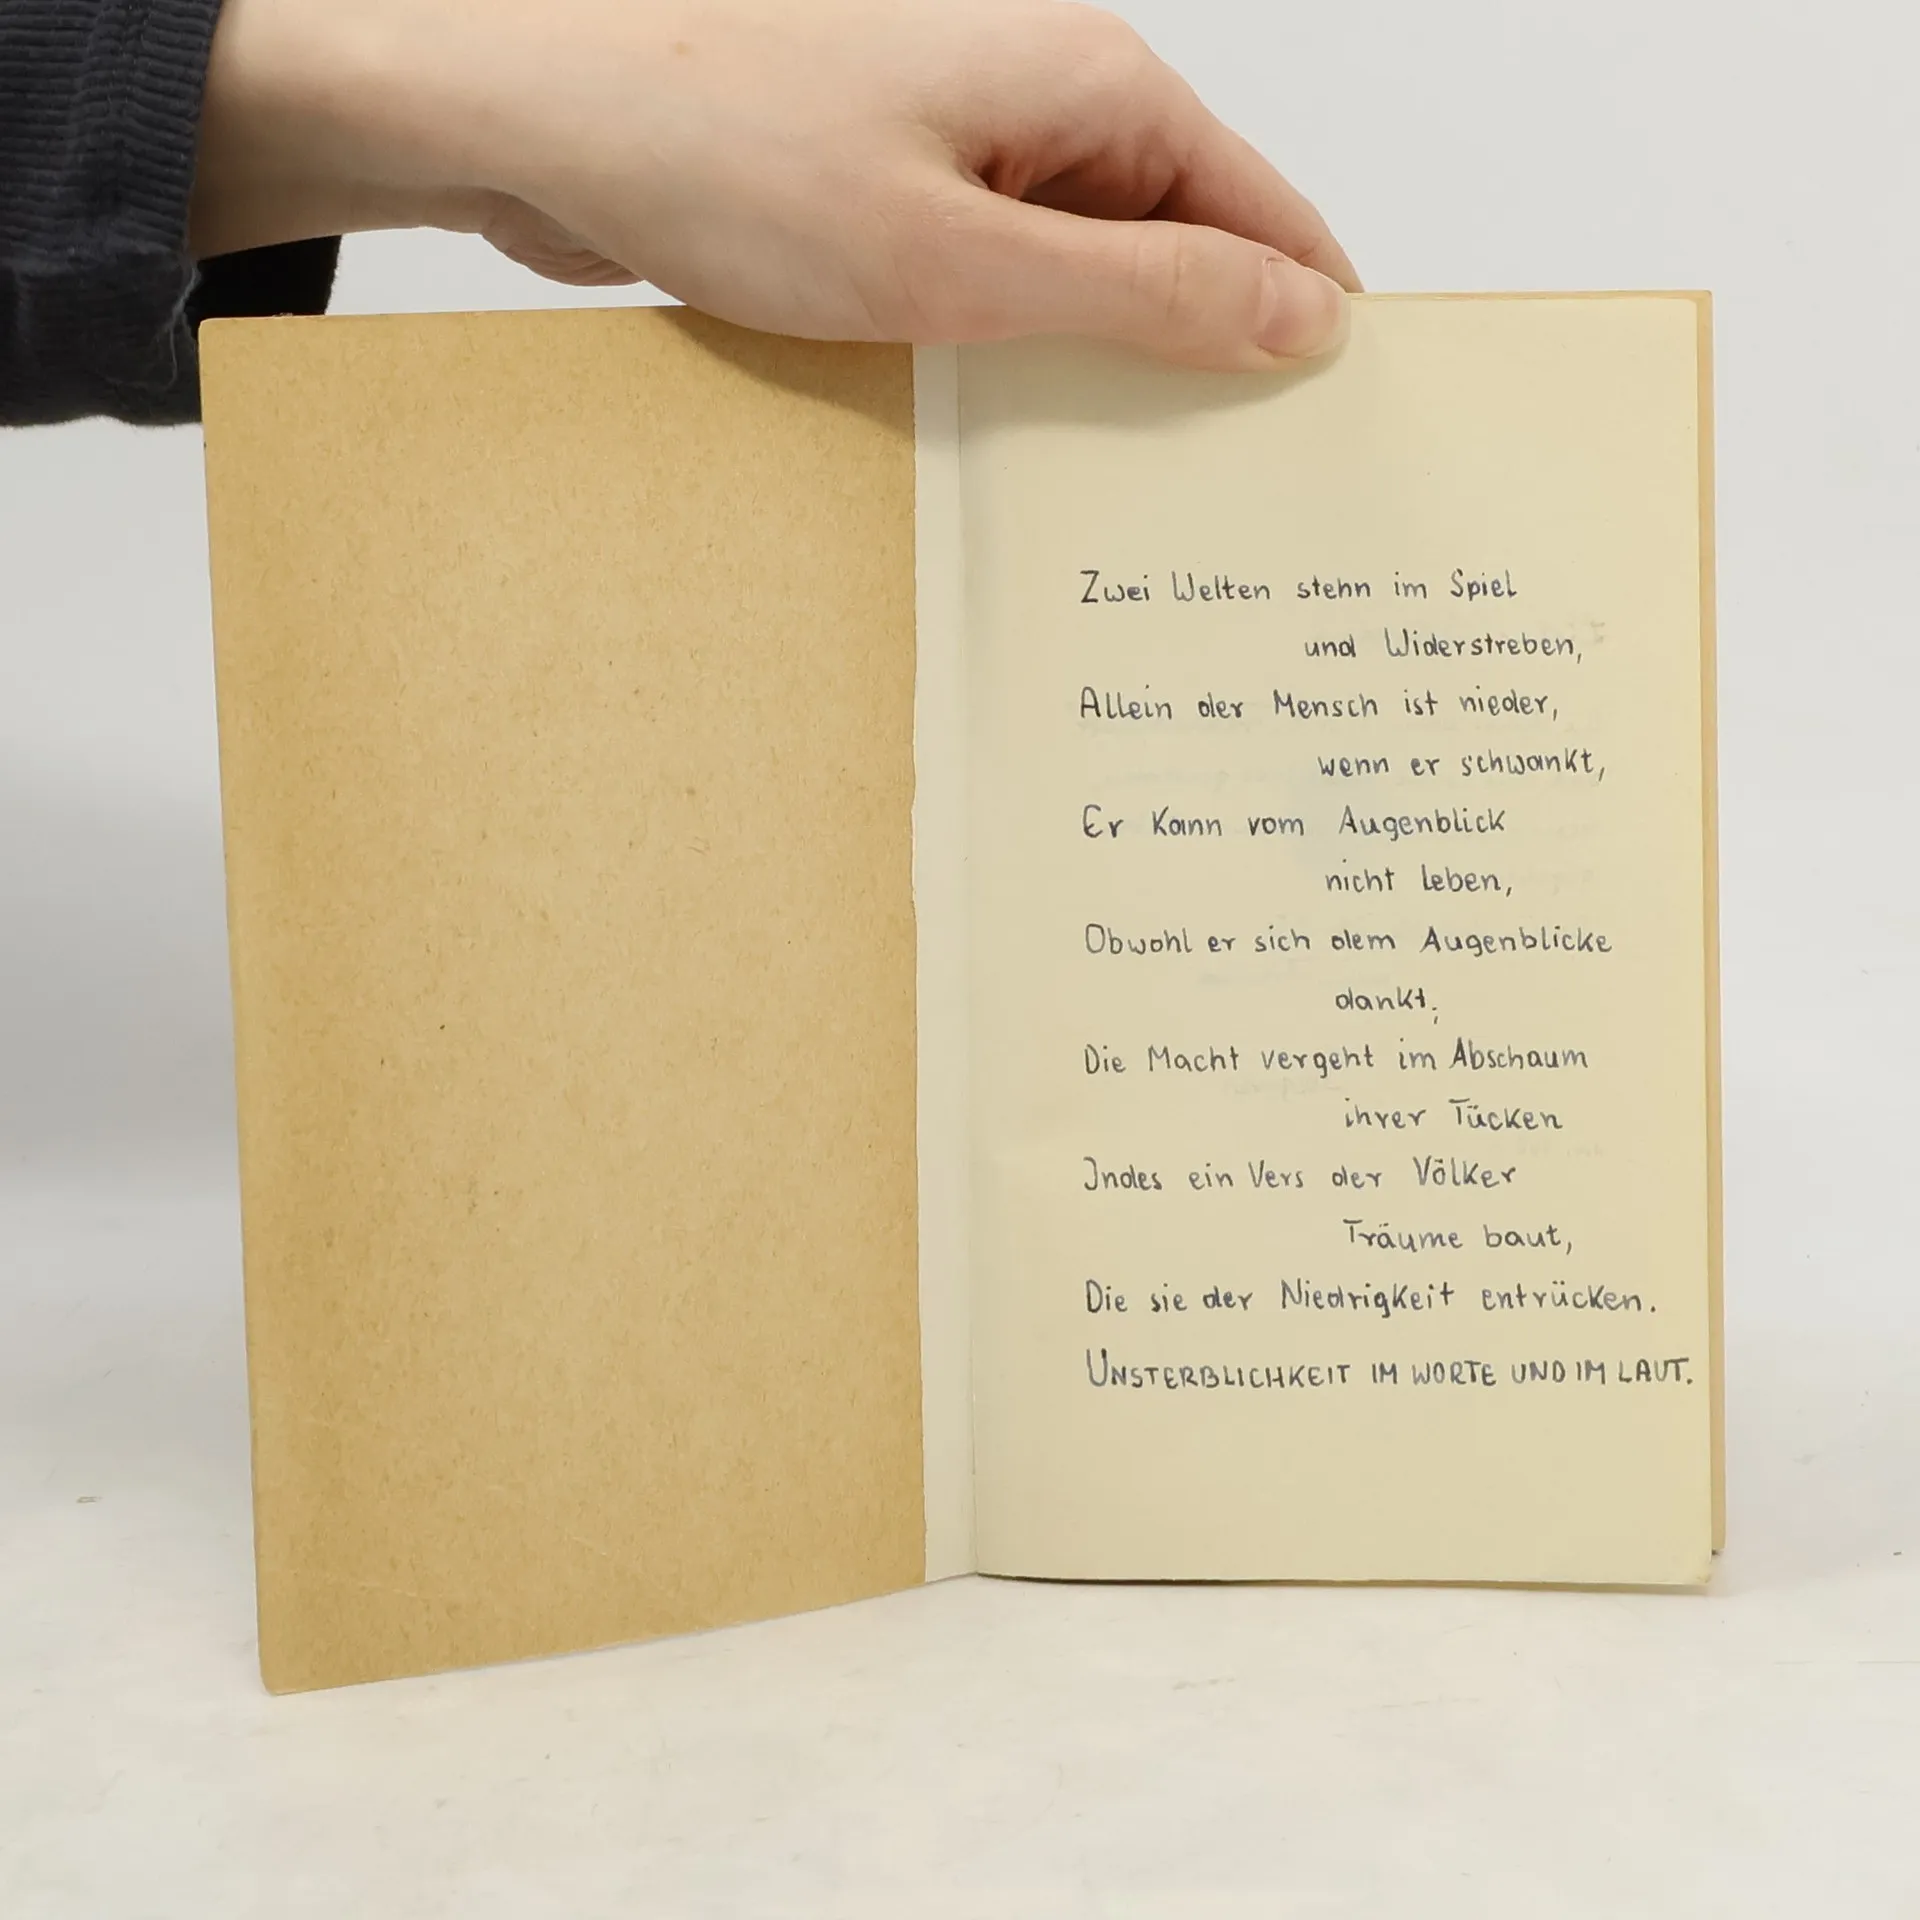 Zwei Welten stehn im Spiel
und Widerstreben,
Allein der Mensch ist nieder,
wenn er schwankt,
Er kann vom Augenblick
nicht leben,
Obwohl er sich dem Augenblicke
dankt;
Die Macht vergeht im Abschaum
ihrer Tücken
Indes ein Vers der Völker
Träume baut,
Die sie der Niedrigkeit entrücken.
UNSTERBLICHKEIT IM WORTE UND IM LAUT.